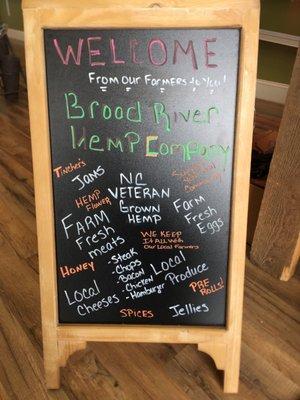 WELCOME
From Our Farmers to you!
Broad River
Hemp Company
Tincher's
Jams
Hemp
Flower
NC
VETERAN
Grown
Hemp
Community
FARM
Fresh
meats
Farm
Fresh
Eggs
WE KEEP
It All with
Our Local Farmers
Honey
Steak
- Chops
- Bacon
- Chicken
- Hamburger
Local
Produce
Local
Cheeses
PRE
ROLLS!
SPICES
Jellies